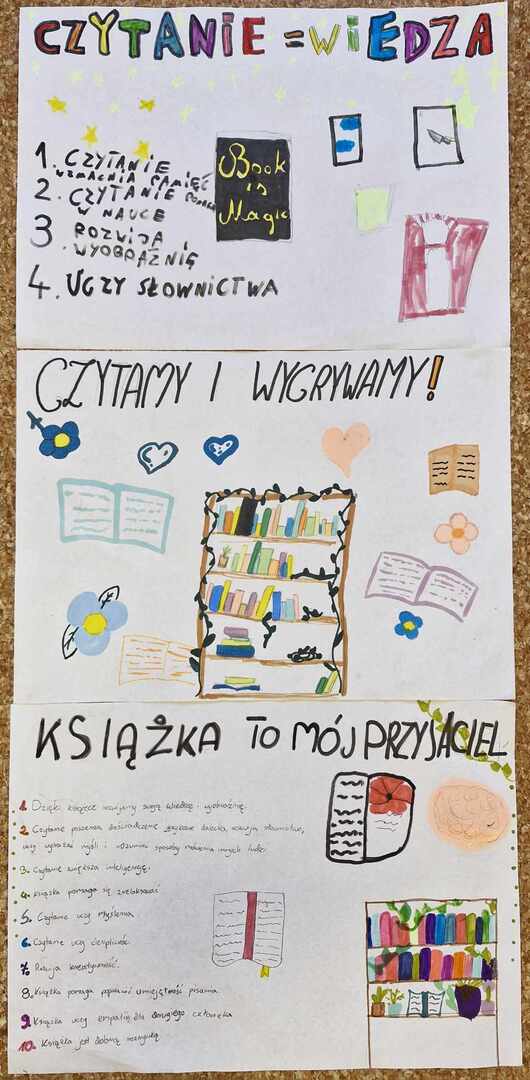 CZYTANIE = WIEDZA
1. CZYTANIE
WZMACNIA PAMIĘĆ
2. CZYTANIE POMAGA
W NAUCE
3 ROZWIJA
WYOBRAŹNIĘ
4. UCZY SŁOWNICTWA
Book
is
Magic
CZYTAMY I WYGRYWAMY!
KSIĄŻKA TO MÓJ PRZYJACIEL
1. Dzięki książce rozwijamy swoją wiedzę i wyobraźnię.
2. Czytanie poszerza doświadczenie językowe dziecka, rozwija słownictwo,
uczy wyrażać myśli i rozumieć sposoby mówienia innych ludzi.
3. Czytanie zwiększa inteligencję.
4. Książka pomaga się zrelaksować
5. Czytanie uczy myślenia.
6. Czytanie uczy cierpliwości.
7. Rozwija kreatywność.
8. Książka pomaga poprawić umiejętność pisania
9. Książka uczy empatii dla drugiego człowieka
10. Książka jest dobrą rozrywką